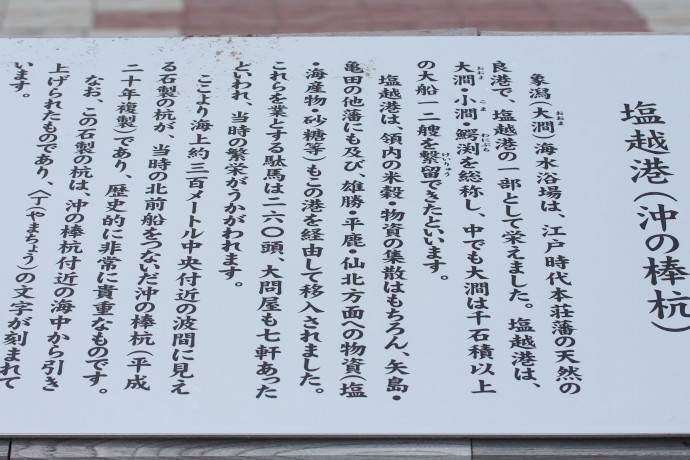 塩越港(沖の棒杭)
象潟(大澗)海水浴場は、江戸時代本荘藩の天然の
良港で、塩越港の一部として栄えました。塩越港は、
大澗・小澗・鰐渕を総称し、中でも大澗は千石積以上
の大船一二艘を繋留できたといいます。
塩越港は、領内の米穀・物資の集散はもちろん、矢島・
亀田の他藩にも及び、雄勝・平鹿・仙北方面への物資(塩
・海産物・砂糖等)もこの港を経由して移入されました。
これらを業とする駄馬は二六〇頭、大問屋も七軒あった
といわれ、当時の繁栄がうかがわれます。
ここより海上約三百メートル中央付近の波間に見え
る石製の杭が、当時の北前船をつないだ沖の棒杭(平成
二十年複製)であり、歴史的に非常に貴重なものです。
なお、この石製の杭は、沖の棒杭付近の海中から引き
上げられたものであり、〈丁(やまちょう)の文字が刻まれて
います。